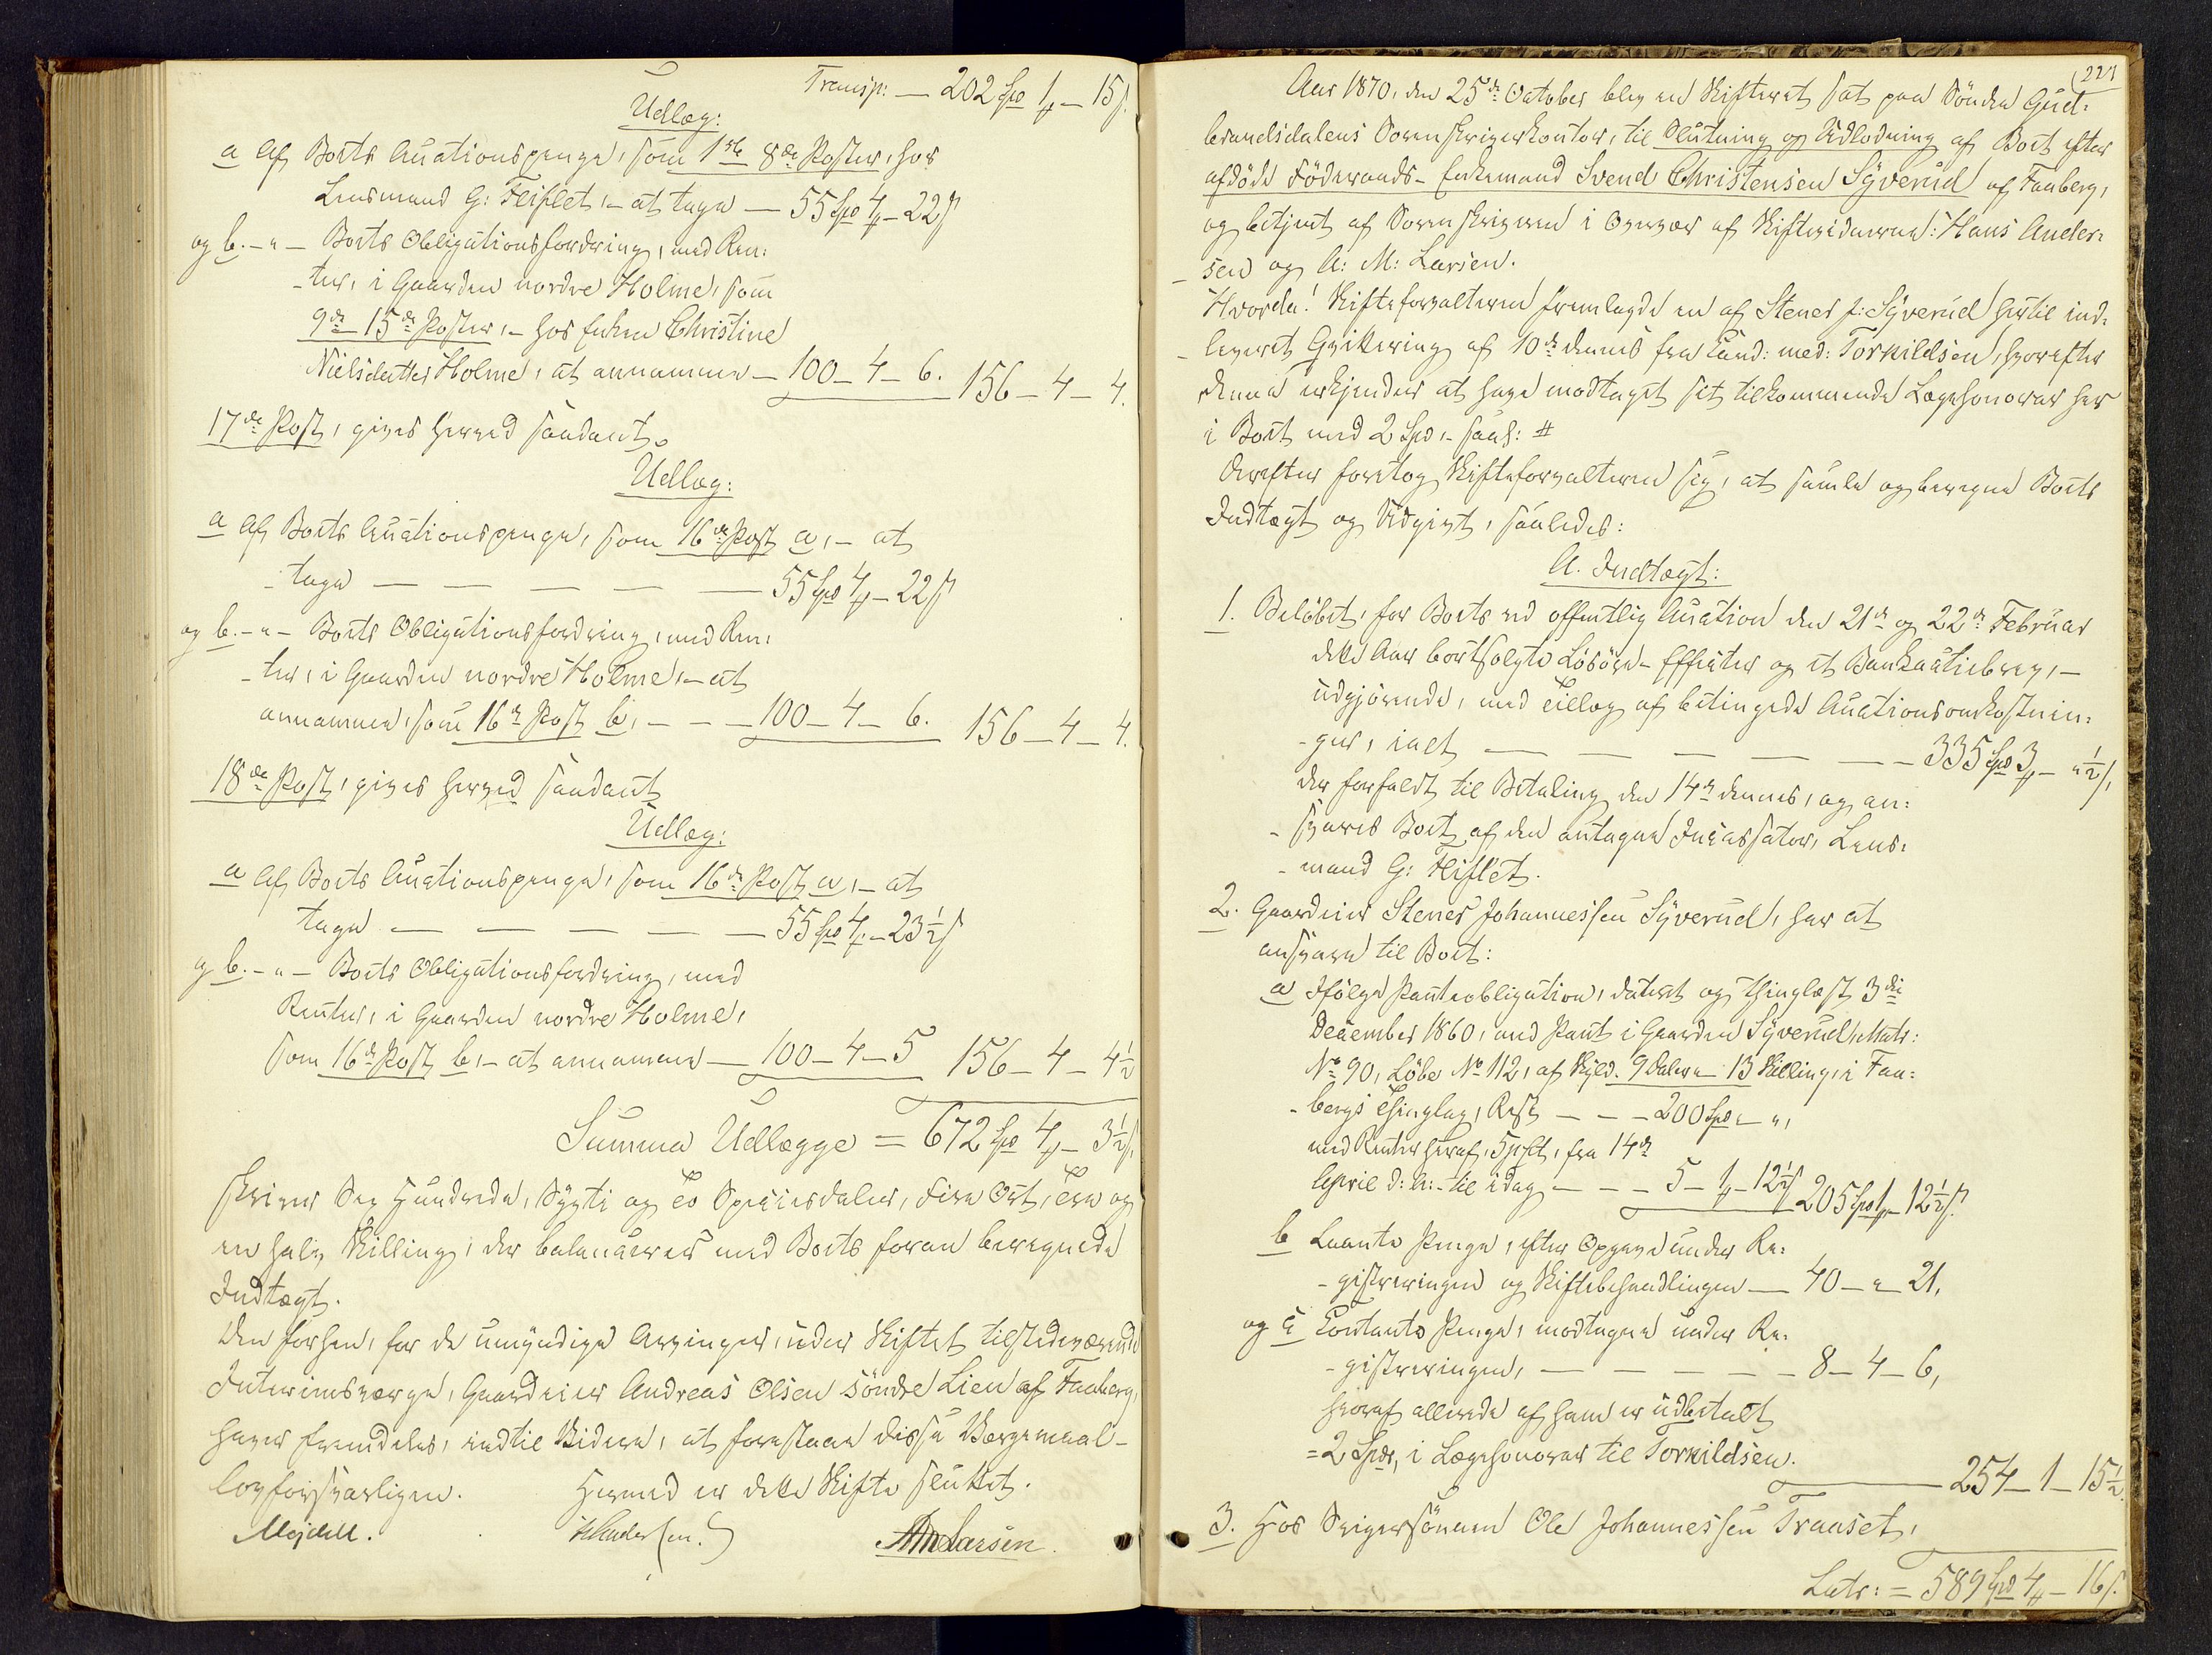 Transp: — 202 Spd 1 ƒ — 15 s.
Udlæg:
a Af Boets Auctionspenge, som 1ste 8de Poster, hos
Lensmand G: Fliflet, – at tage — 55 Spd 4 – 22 s
og b. – " – Boets Obligationsfordring, med Ren:
-ter, i Gaarden nordre Holme, som
9de 15de Poster, – hos Enken Christine
Nielsdatter Holme, at annamme — 100 – 4 – 6. 156 – 4 – 4.
17de Post, gives herved saadant
Udlæg:
a Af Boets Auctionspenge, som 16de Post a, – at
-tage — — — — — 55 Spd 4 – 22 s
og b. – " – Boets Obligationsfordring, med Ren:
-ter, i Gaarden nordre Holme, – at
annamme, som 16de Post b, – – – 100 – 4 – 6. 156 – 4 – 4.
18de Post, gives herved saadant
Udlæg:
a Af Boets Auctionspenge, som 16de Post a, – at
tage — — — — — 55 Spd 4 – 23½ s
og b. – " – Boets Obligationsfordring, med
Renter, i Gaarden nordre Holme,
som 16de Post b, – at annamme — 100 – 4 – 5 156 – 4 – 4½
Summa Udlægge = 672 Spd 4 – 3½ s.
skriver Sex Hundrede, Sytti og to Speciesdaler, fire Ort, tre og
en halv Skilling, der balancerer med Boets foran beregnede
Indtægt.
Den forhen, for de umyndige Arvinger, under Skiftet tilstedeværende
Interimsværge, Gaardeier Andreas Olsen söndre Lien af Faaberg,
haver fremdeles, indtil Videre, at forestaae disse Værgemaal-
lovforsvarligen. Hermed er dette Skifte sluttet.
Mejdell. HAndersen. AMLarsen.
221
Aar 1870, den 25de October blev en Skifteret sat paa Söndre Gud:
brandsdalens Sorenskriverkontor, til Slutning og Udlodning af Boet efter
afdöde Föderaads-Enkemand Svend Christensen Syverud af Faaberg,
og betjent af Sorenskriveren i Overvær af Skiftevidnerne: Hans Ander:
- sen og A: M: Larsen.
Hvorda! Skifteforvalteren fremlagde en af Stener J: Syverud hertil ind:
- leveret Qvittering af 10de dennes fra Cand: med: Torkildsen, hvorefter
denne erkjender at have modtaget sit tilkommende Lægehonorar her
i Boet med 2 Spd, – saal: #
Derefter foretog Skifteforvalteren sig, at samle og beregne Boets
Indtægt og Udgivt, saaledes:
A. Indtægt:
1. Belöbet, for Boets ved offentlig Auction den 21de og 22de Februar
dette Aar bortsolgte Lösöre-Effecter og et Bankactiebrev, –
udgjörende, med Tillæg af betingede Auctionsomkostnin:
-ger, ialt — — — — — 335 Spd 3 – "½ s,
der forfaldt til Betaling den 14de dennes, og an:
- svares Boet af den antagne Incassator, Lens:
- mand G: Fliflet.
2. Gaardeier Stener Johannessen Syverud, har at
ansvare til Boet:
a Ifölge Panteobligation, dateret og thinglæst 3die
December 1860, med Pant i Gaarden Syverud, Matr:
No 90, Löbe No 112, af Skyld. 9 Daler 13 Skilling, i Faa:
- bergs Thinglag, Rest — – – 200 Spd – ",
med Renter heraf, 5 pCt, fra 14de
April d: A: – til idag — – – 5 – 1 – 12½ s 205 Spd 1 – 12½ s.
b Laante Penge, efter Opgave under Re:
- gistreringen og Skiftebehandlingen — 40 – " – 21,
og c Contante Penge, modtagne under Re:
- gistreringen, — — — — 8 – 4 – 6,
hvoraf allerede af ham er udbetalt
= 2 Spdr, i Lægehonorar til Torkildsen.
254 – 1 – 15½
3. Hos Svigersönnen Ole Johannessen Traaset,
Latr: = 589 Spd 4 – 16 s.